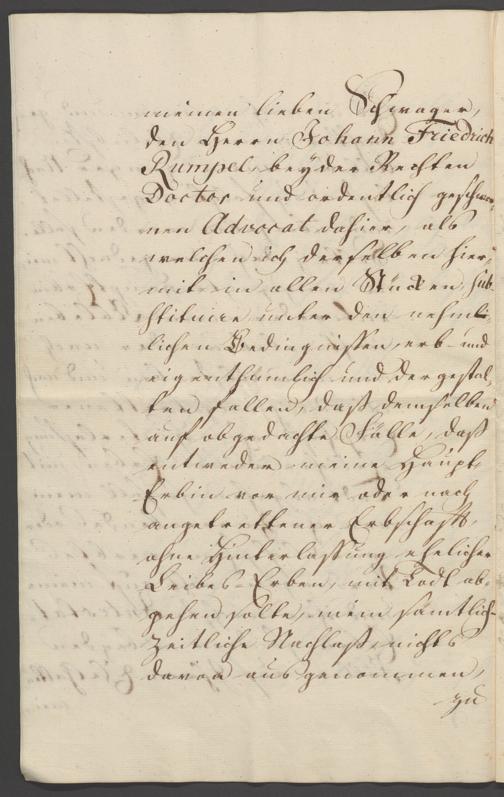 meinen lieben Schwager,
den Herrn Johann Friedrich
Rumpel, beyder Rechten
Doctor und ordentlich geschwor-
nen Advocat dahier, als
welchen ich derselben hier-
mit in allen Stücken sub-
stituire unter den nehm-
lichen Bedingnissen, erb- und
eigenthümlich und dergestal-
ten fallen, daß demselben
auf obgedachte Fälle, daß
entweder meine Haupt-
Erbin vor mir oder nach
angetrettener Erbschafft,
ohne Hinterlassung ehelicher
Leibes-Erben, mit Todt ab-
gehen solte, mein sämtlich-
Zeitliche Nachlaß, nichts
davon ausgenommen,
zu